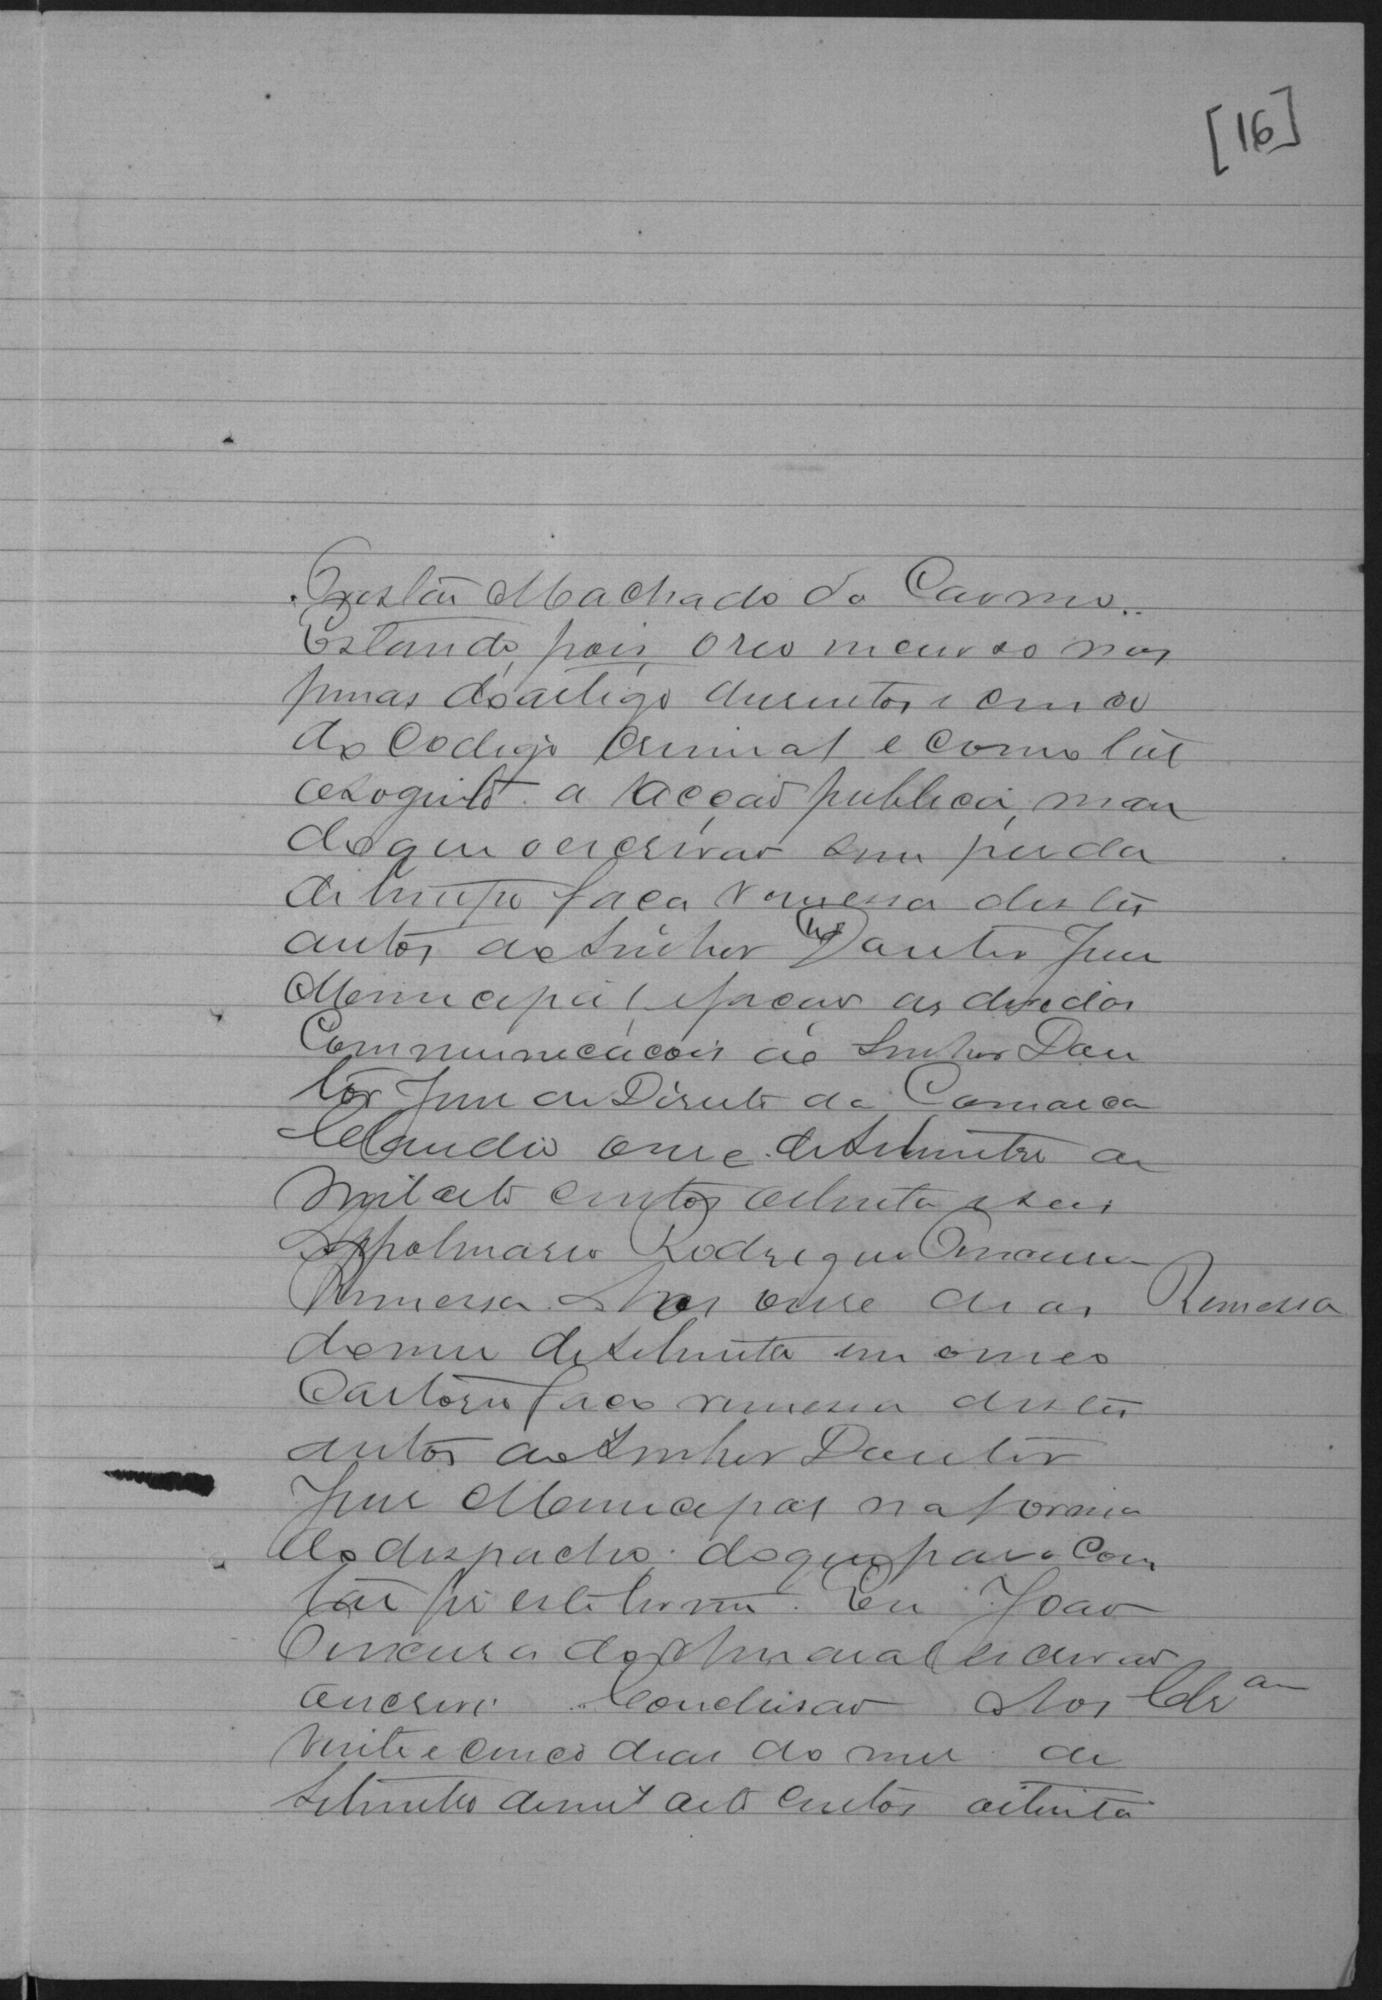 [16]
Tristão Machado do Carmo..
Estando, pois, o reo incurso nas
penas do artigo dusentos e cinco
do Codigo Criminal e como
a acção publica, man
do que o escrivão sem perda
de tempo faça remessa destes
autos ao Senhor Doutor Juis
Municipal, e façao as devidas
Communicacois ao Senhor Dou
tor Juis de Direito da Comarca
Claudio onse de Setembro de
mil oito centos oitenta e seis
Appolinario Rodrigues
Remessa Aos onse dias Remessa
do mes de Setembro em o meo
Cartorio faco remessa destes
autos ao Senhor Doutor
Juis Municipal na forma
do despacho: do que para Cons
tar fis este termo. Eu João
do Amaral escrivão
escrevi. Concluisao Aos Cls.am
vinte e cinco dias do mes de
Setembro de mil oito centos oitenta